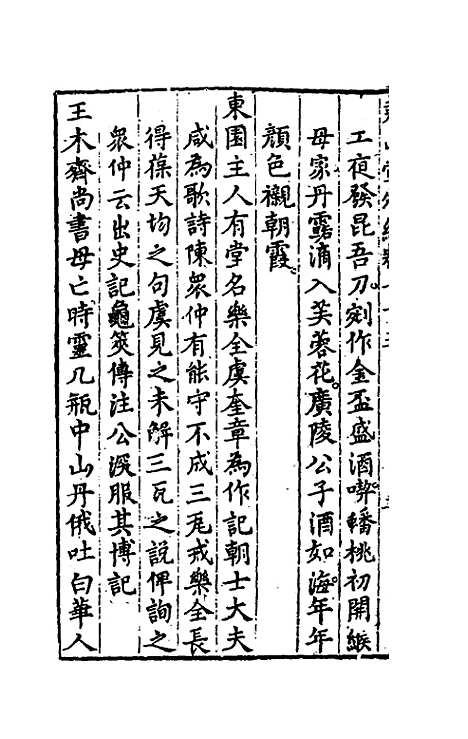 工夜發昆吾刀剜作金盃盛酒喫轓桃初開緱
母家丹露滴入芙蓉花廣陵公子酒如海年年
顔色襯朝霞
東園主人有堂名樂全虞奎章為作記朝士大夫
咸為歌詩陳衆仲有能守不成三瓦戒樂全長
得葆天均之句虞見之未解三瓦之說俾詢之
衆仲云出史記龜筴傳注公深服其博記
王木齋尚書母亡時靈几瓶中山丹俄吐白華人